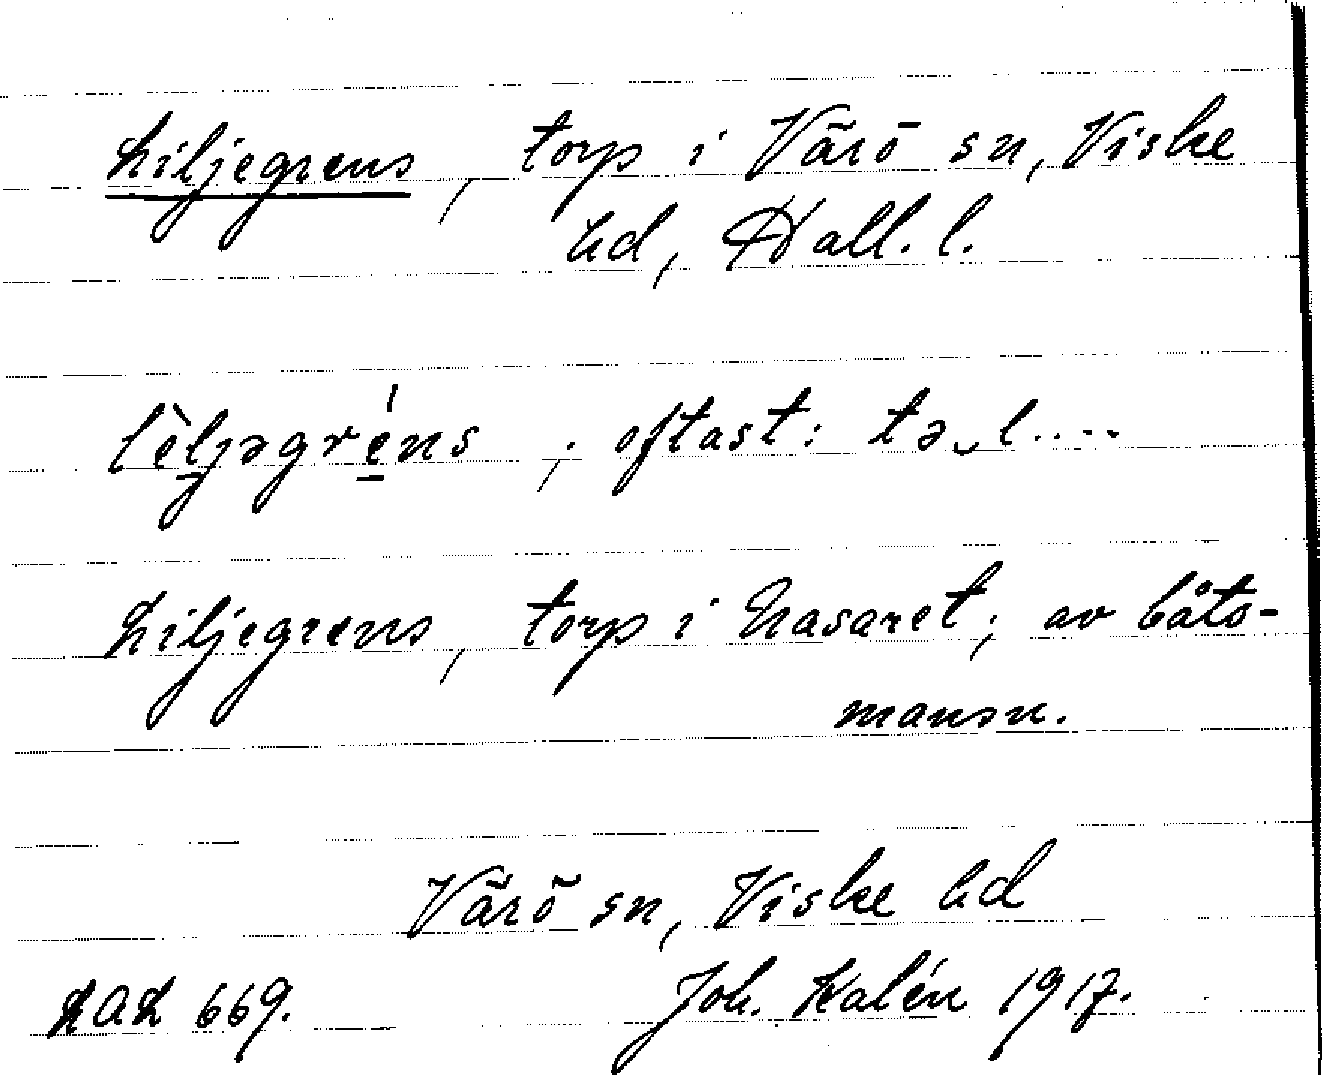 Liljegrens, torp i Värö sn, Viske
hd, Hall. l.
lèljəgréns, oftast: tə‿l....
Liljegrens, torp i Nasaret; av båts-
mansn.
Värö sn, Viske hd
LAL 669. Joh. Kalén 1917.